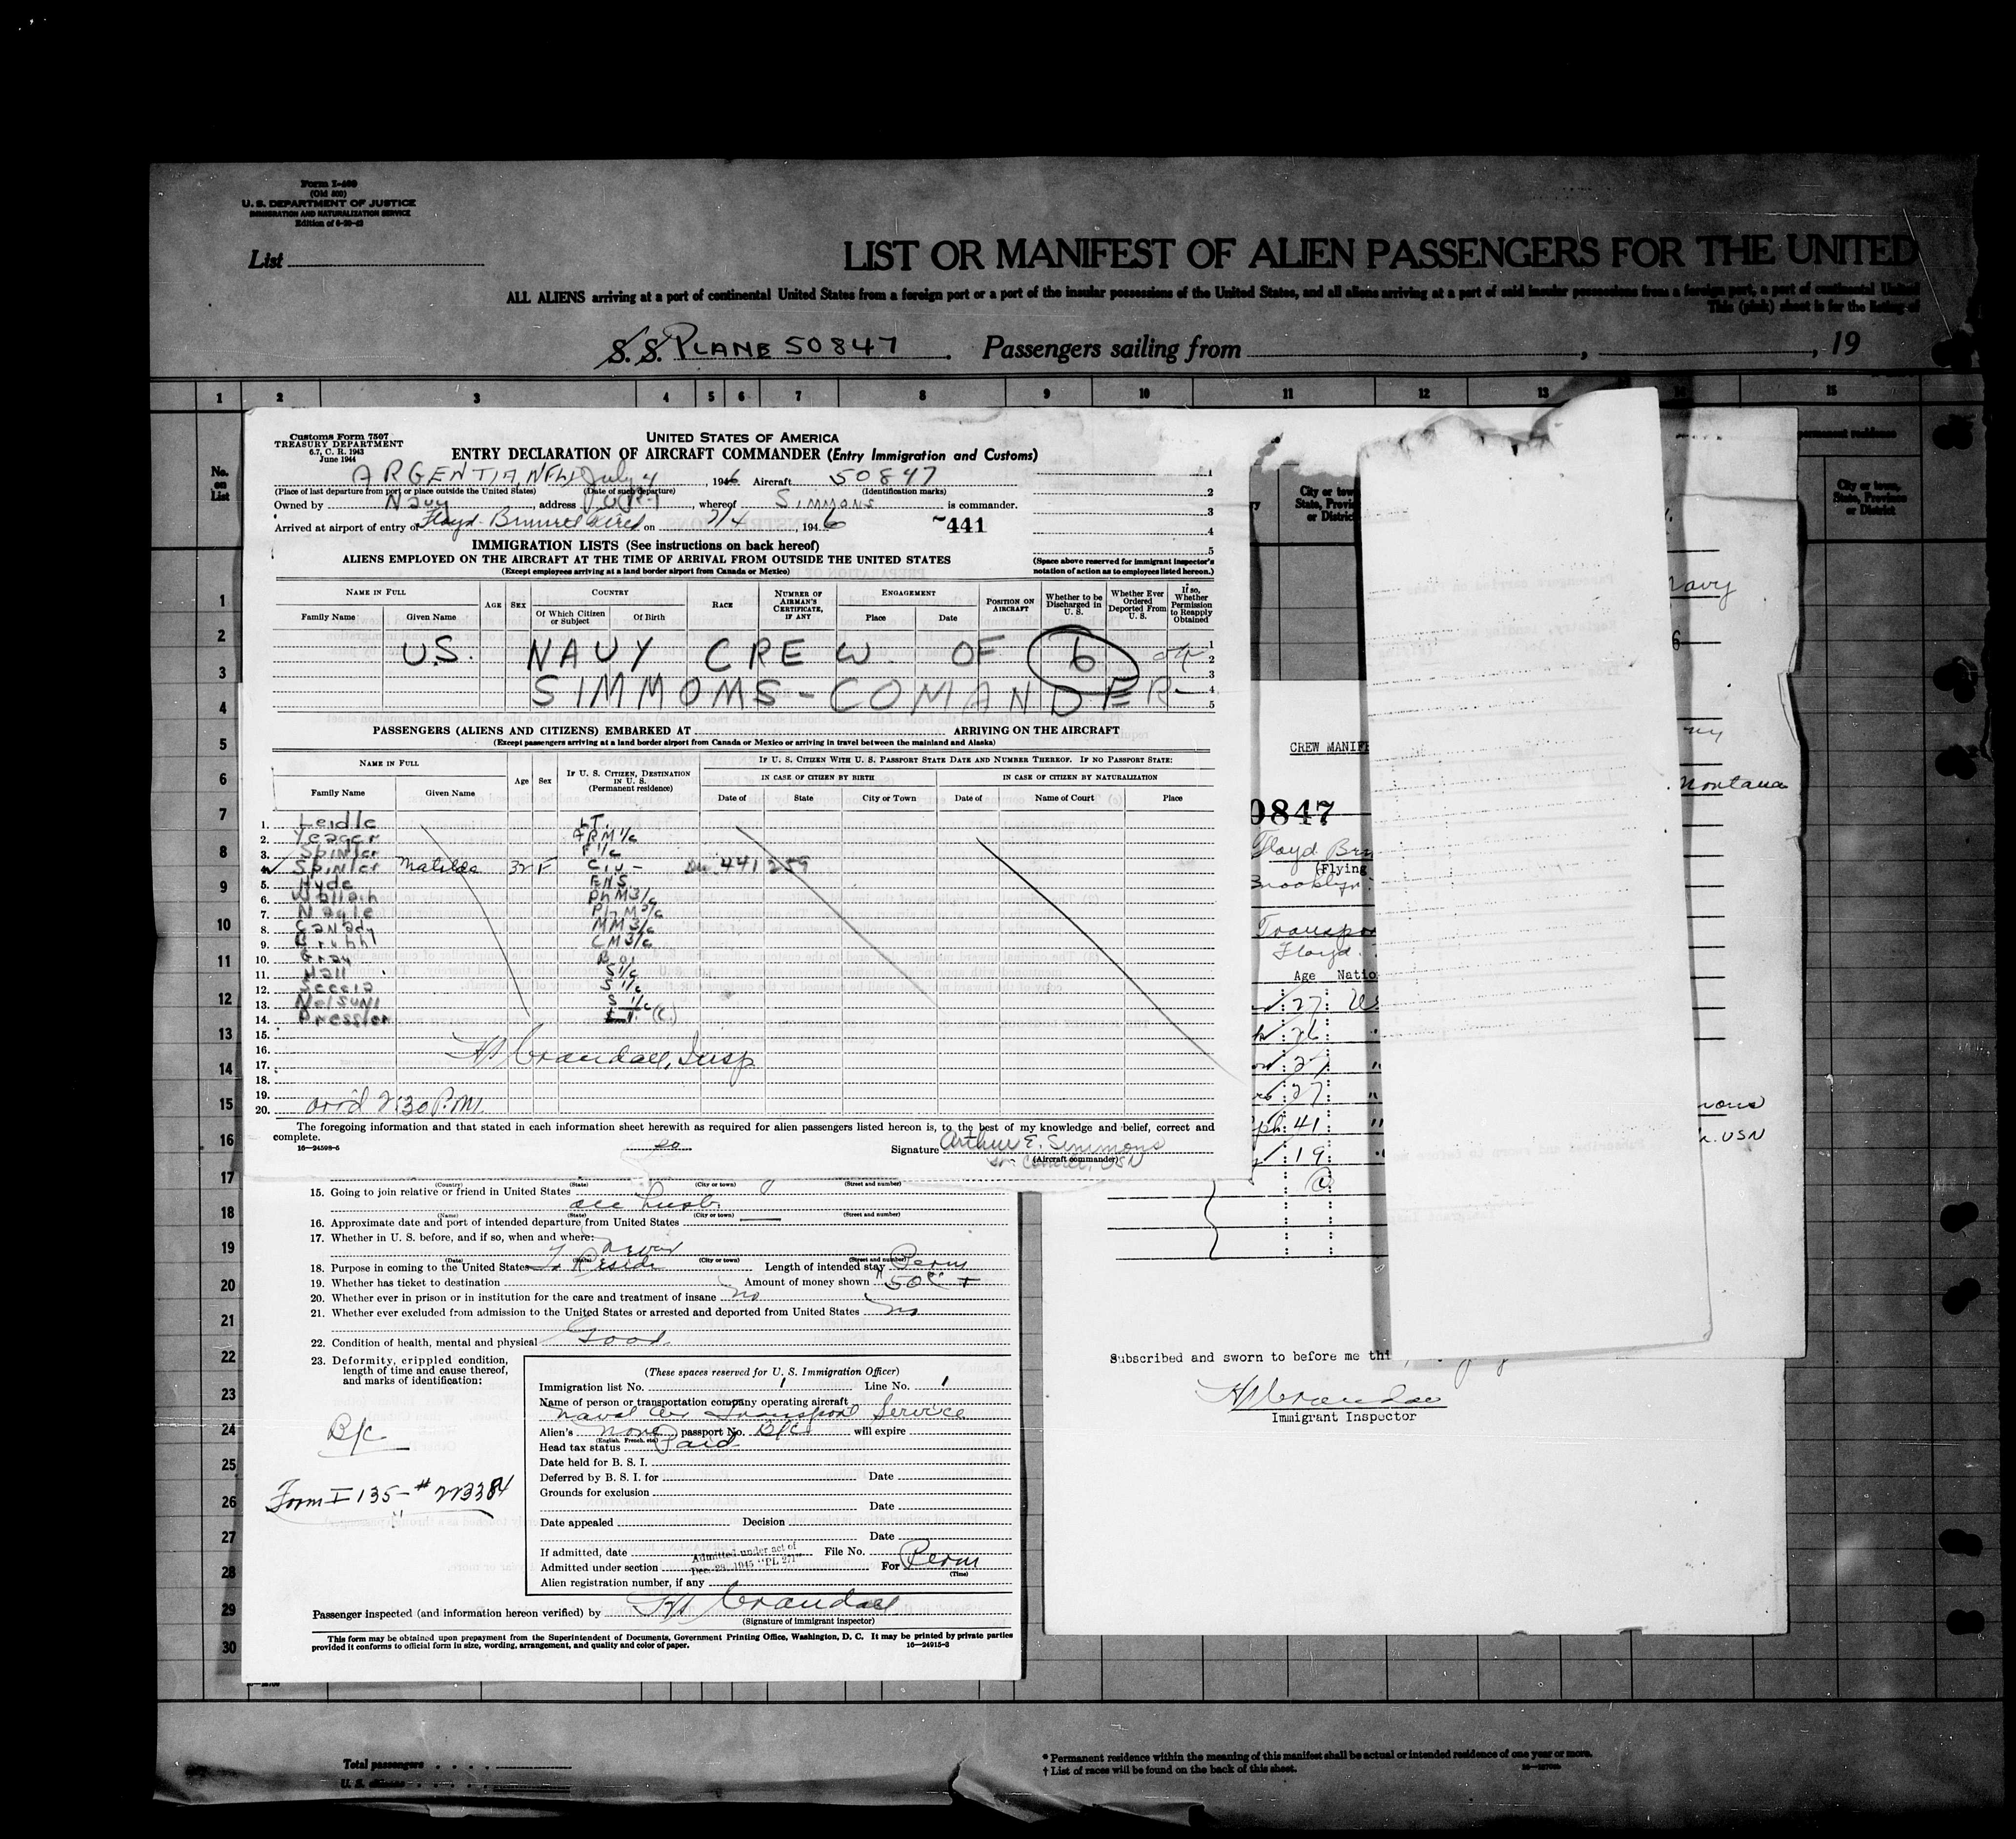 Form I-400
(Old 500)
U. S. DEPARTMENT OF JUSTICE
IMMIGRATION AND NATURALIZATION SERVICE
List
LIST OR MANIFEST OF ALIEN PASSENGERS FOR THE UNITED
ALL ALIENS arriving at a port of continental United States from a foreign port or a port of the insular possessions of the United States, and all aliens arriving at a port of said insular possessions from a foreign port, a port of continental United
This (pink) sheet is for the listing of
S. S. PLANE 50847 Passengers sailing from , , 19
1 2 3 4 5 6 7 8 9 10 11 12 13 14 15
Customs Form 7507
TREASURY DEPARTMENT
6.7, C. R. 1943
June 1944
UNITED STATES OF AMERICA
ENTRY DECLARATION OF AIRCRAFT COMMANDER (Entry Immigration and Customs)
ARGENTIA, NFLD July 4 1946 Aircraft 50847
(Place of last departure from port or place outside the United States) (Date of such departure) (Identification marks)
Owned by Navy, address , whereof SIMMONS is commander.
Arrived at airport of entry of Floyd Bennett Field on 7/4, 1946
441
IMMIGRATION LISTS (See instructions on back hereof)
ALIENS EMPLOYED ON THE AIRCRAFT AT THE TIME OF ARRIVAL FROM OUTSIDE THE UNITED STATES
(Except employees arriving at a land border airport from Canada or Mexico)
(Space above reserved for immigrant inspector's notation of action as to employees listed hereon.)
NAME IN FULL
Family Name Given Name
AGE SEX
COUNTRY
Of Which Citizen or Subject Of Birth
RACE
NUMBER OF AIRMAN'S CERTIFICATE, IF ANY
ENGAGEMENT
Place Date
POSITION ON AIRCRAFT
Whether to be Discharged in U. S.
Whether Ever Ordered Deported From U. S.
If so, Whether Permission to Reapply Obtained
U.S. NAVY CREW OF 6 OK
SIMMOMS - COMANDER
PASSENGERS (ALIENS AND CITIZENS) EMBARKED AT ARRIVING ON THE AIRCRAFT
(Except passengers arriving at a land border airport from Canada or Mexico or arriving in travel between the mainland and Alaska)
NAME IN FULL
Family Name Given Name
Age Sex
IF U. S. CITIZEN, DESTINATION IN U. S.
(Permanent residence)
IF U. S. CITIZEN WITH U. S. PASSPORT STATE DATE AND NUMBER THEREOF. IF NO PASSPORT STATE:
IN CASE OF CITIZEN BY BIRTH
Date of State City or Town
IN CASE OF CITIZEN BY NATURALIZATION
Date of Name of Court Place
1. Leidle LT.
2. Yeager ARM 1/c
3. Spinler F 1/c
4. Spinler Matilda 32 F Civ - 441 259
5. Hyde ENS
6. Wallach PhM3/c
7. Nagle PhM
8. Canady MM3/c
9. CM3/c
10. Gray
11. Hall S1/c
12. Seccia S 1/c
13. Nelson S 1/c
14. Pressler LT. (C)
15.
16. Crandall, Insp
17.
18.
19.
20. arr'd 2:30 P.M.
The foregoing information and that stated in each information sheet herewith as required for alien passengers listed hereon is, to the best of my knowledge and belief, correct and complete.
16—24598-5
Signature Arthur E. Simmons
(Aircraft commander)
USN
(Country) (State) (City or town) (Street and number)
15. Going to join relative or friend in United States
(Name) (State) (City or town) (Street and number)
16. Approximate date and port of intended departure from United States
17. Whether in U. S. before, and if so, when and where: Never
(Date) (State) (City or town) (Street and number)
18. Purpose in coming to the United States To Reside Length of intended stay Perm
19. Whether has ticket to destination Amount of money shown
20. Whether ever in prison or in institution for the care and treatment of insane no
21. Whether ever excluded from admission to the United States or arrested and deported from United States no
22. Condition of health, mental and physical Good
23. Deformity, crippled condition, length of time and cause thereof, and marks of identification:
B/C
Form I 135 - # 223384
(These spaces reserved for U. S. Immigration Officer)
Immigration list No. 1 Line No. 1
Name of person or transportation company operating aircraft
Naval Air Transport Service
Alien's none passport No. B/C will expire
(English, French, etc.)
Head tax status Paid
Date held for B. S. I.
Deferred by B. S. I. for Date
Grounds for exclusion
Date
Date appealed Decision
Date
If admitted, date File No.
Admitted under section Admitted under act of Dec. 28, 1945 "PL 271" For Perm
(Time)
Alien registration number, if any
Passenger inspected (and information hereon verified) by Crandall
(Signature of immigrant inspector)
This form may be obtained upon prepayment from the Superintendent of Documents, Government Printing Office, Washington, D. C. It may be printed by private parties
provided it conforms to official form in size, wording, arrangement, and quality and color of paper. 16—24915-3
City or town, State, Province or District
CREW MANIF
0847
Floyd Ben
(Flying
Brooklyn
Transpor
Floyd
Age Natio
27 US
26
27
27
41
19
Navy
Montana
USN
Subscribed and sworn to before me thi
Crandall
Immigrant Inspector
No. on List
1
2
3
4
5
6
7
8
9
10
11
12
13
14
15
16
17
18
19
20
21
22
23
24
25
26
27
28
29
30
Total passengers
U. S. citizens
* Permanent residence within the meaning of this manifest shall be actual or intended residence of one year or more.
† List of races will be found on the back of this sheet.